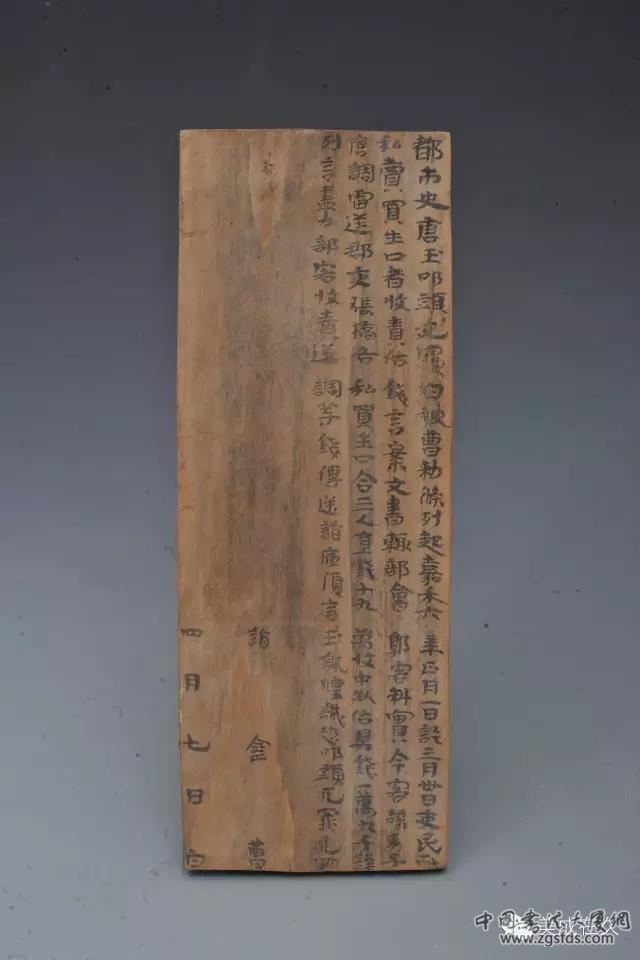 都市史唐玉叩頭死罪白被曹勑條列起嘉禾六年正月一日訖三月卅日吏民所
私賣買生口者收責估錢言案文書輒部會郭客料實今客辭男子
唐調雷逆郡吏張橋各私買生口合三人直錢十九萬收中外估具錢一萬九千謹
列言盡力部客收責逆調等錢傳送詣庫復言玉誠惶誠恐叩頭死罪死罪
詣金曹
四月七日白
美成在久
中国书法大展网
www.zgsfds.com